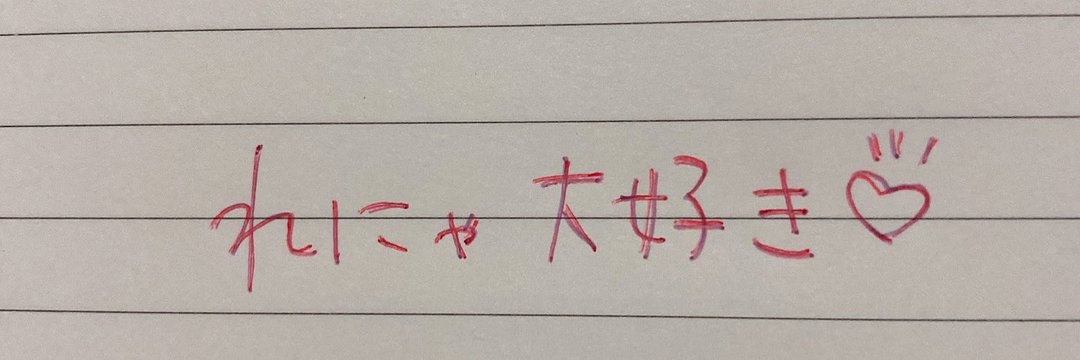 れにゃ 大好き♡